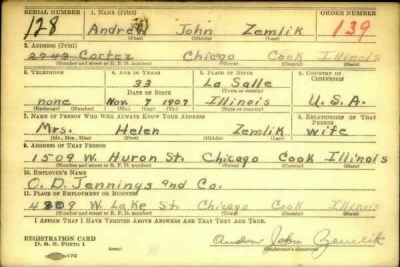 SERIAL NUMBER 1. NAME (Print) ORDER NUMBER
128 Andrew John Zemlik 139
(First) (Middle) (Last)
2. ADDRESS (Print)
2743 Cortez Chicago Cook Illinois
(Number and street or R. F. D. number) (Town) (County) (State)
3. TELEPHONE 4. AGE IN YEARS 5. PLACE OF BIRTH 6. COUNTRY OF CITIZENSHIP
33 La Salle
DATE OF BIRTH (Town or county)
none Nov. 7 1907 Illinois U.S.A.
(Mo.) (Day) (Yr.) (State or country)
7. NAME OF PERSON WHO WILL ALWAYS KNOW YOUR ADDRESS 8. RELATIONSHIP OF THAT PERSON
Mrs. Helen Zemlik wife
(Mr., Mrs., Miss) (First) (Middle) (Last)
9. ADDRESS OF THAT PERSON
1509 W. Huron St. Chicago Cook Illinois
(Number and street or R. F. D. number) (Town) (County) (State)
10. EMPLOYER'S NAME
O. D. Jennings and Co.
11. PLACE OF EMPLOYMENT OR BUSINESS
4309 W. Lake St. Chicago Cook Illinois
(Number and street or R. F. D. number) (Town) (County) (State)
I AFFIRM THAT I HAVE VERIFIED ABOVE ANSWERS AND THAT THEY ARE TRUE.
REGISTRATION CARD
D. S. S. Form 1 Andrew John Zemlik
(Registrant's signature)